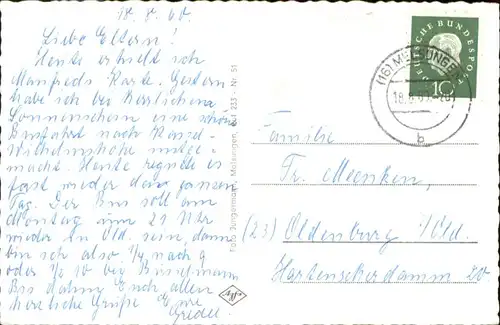 18. 8. 60.
Liebe Eltern!
Heute erhielt ich
Manfreds Karte. Gestern
habe ich bei herrlichem
Sonnenschein eine schöne
Busfahrt nach Kassel-
Wilhelmshöhe mitge-
macht. Heute regnete es
fast wieder den ganzen
Tag. Der Bus soll am
Montag um 21 Uhr
wieder in Old. sein, dann
bin ich also 1/4 nach 9
oder 1/2 10 bei
Bis dahin Euch allen
herzliche Grüße Eure
Gredel.
Foto Jungermann, Melsungen, Ruf 233 - Nr. 51
DEUTSCHE BUNDESPOST
10
(16) MELSUNGEN
18.8.60
b
Familie
Fr. Meenken,
(23) Oldenburg i/Old.
Hartenscherdamm 20